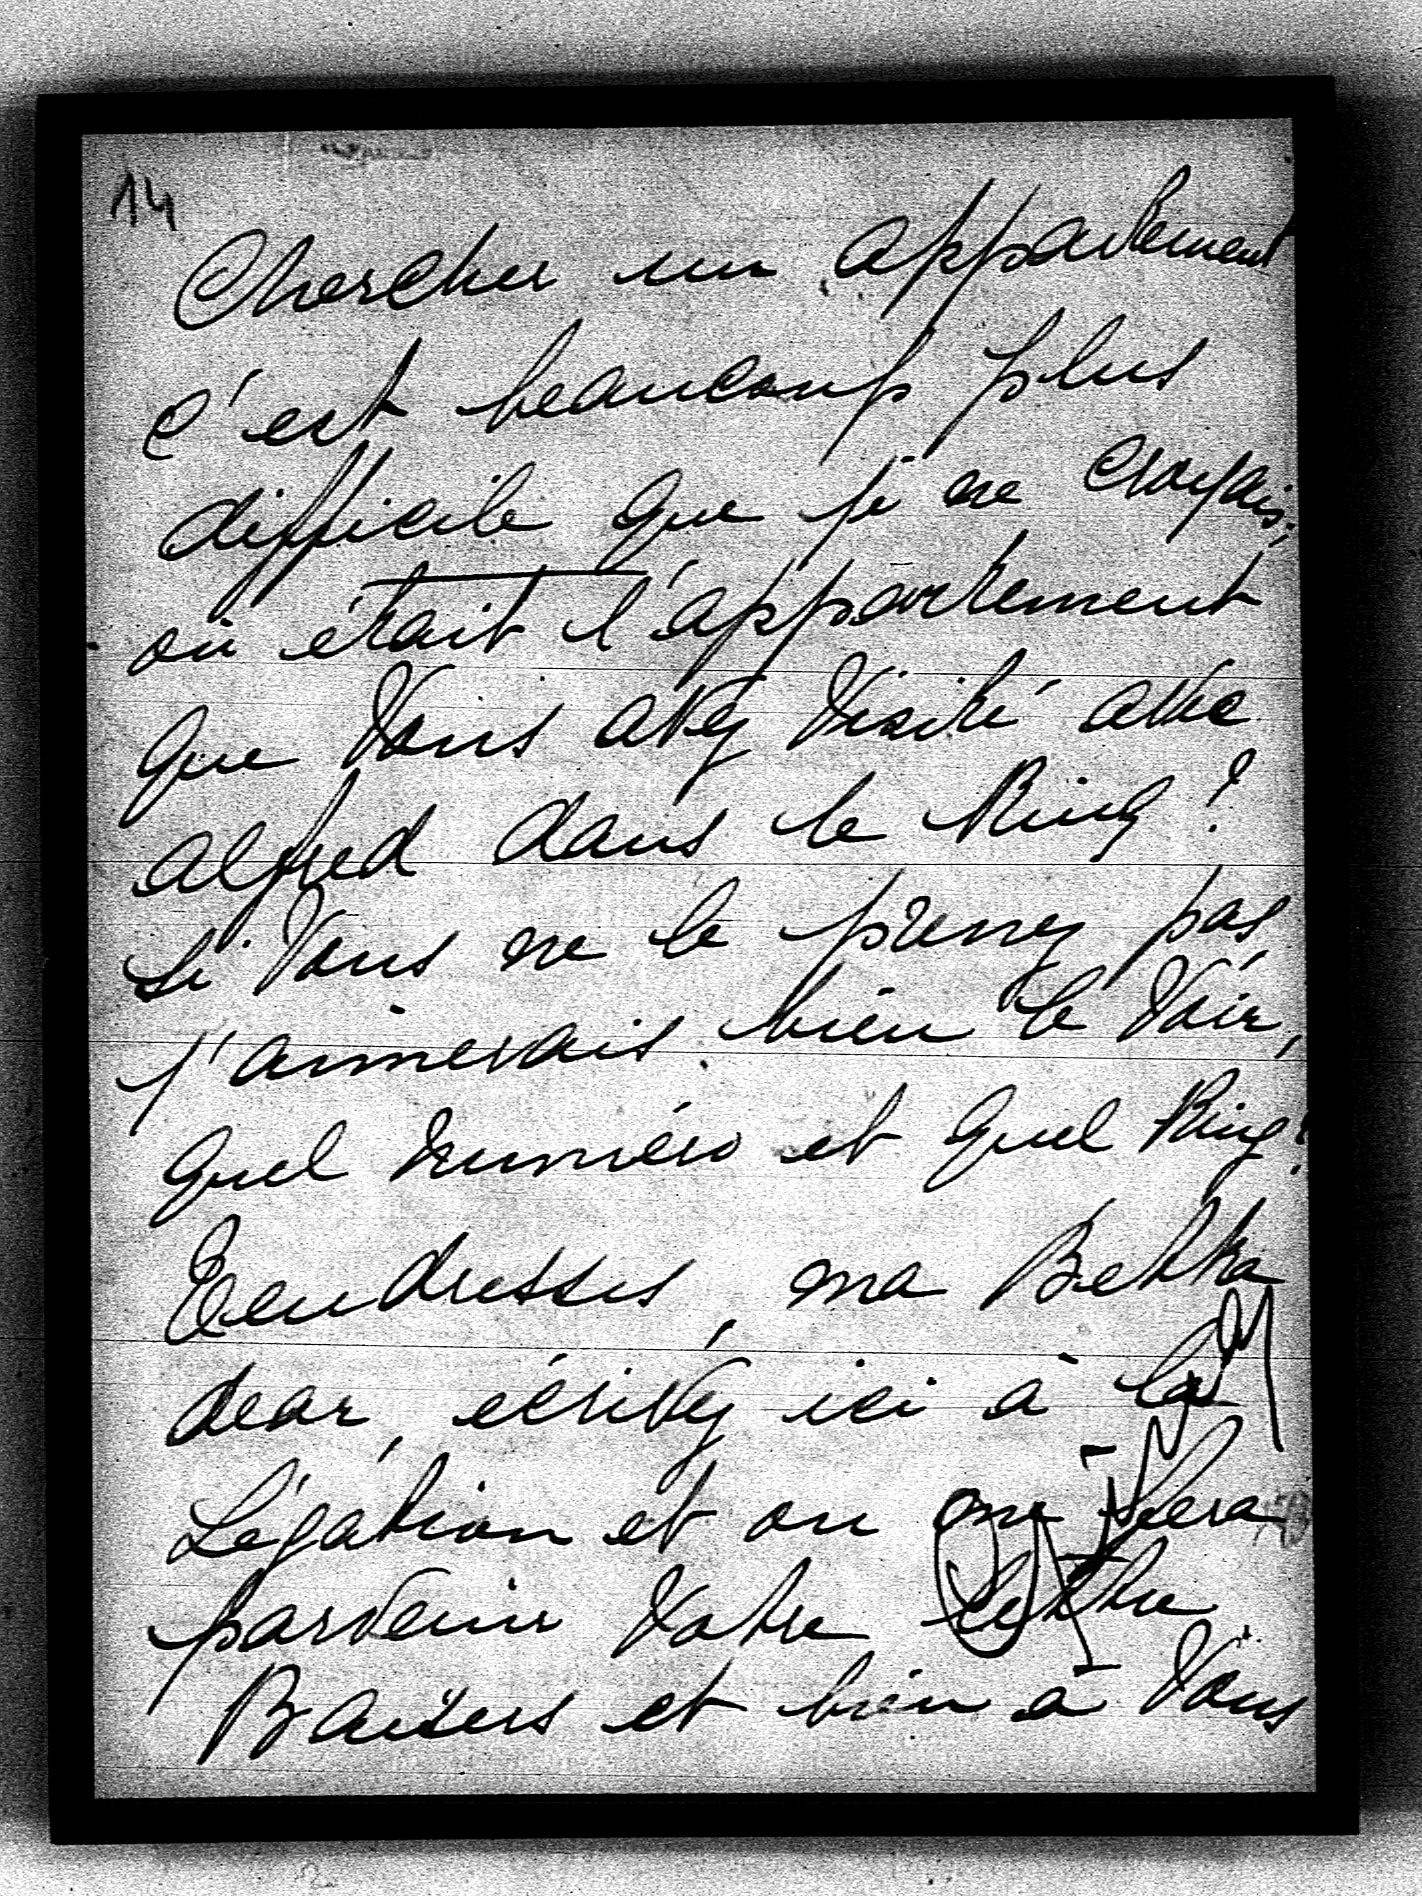 14
Chercher un appartement
c'est beaucoup plus
difficile que je ne croyais,
où était l'appartement
que vous avez visité avec
Alfred dans le Ring?
Si vous ne le prenez pas
j'aimerais bien le voir,
quel numéro et quel Ring?
Tendresses, ma Betka
dear, écrivez ici à la
Légation et on me fera
parvenir votre lettre
Baisers et bien à vous